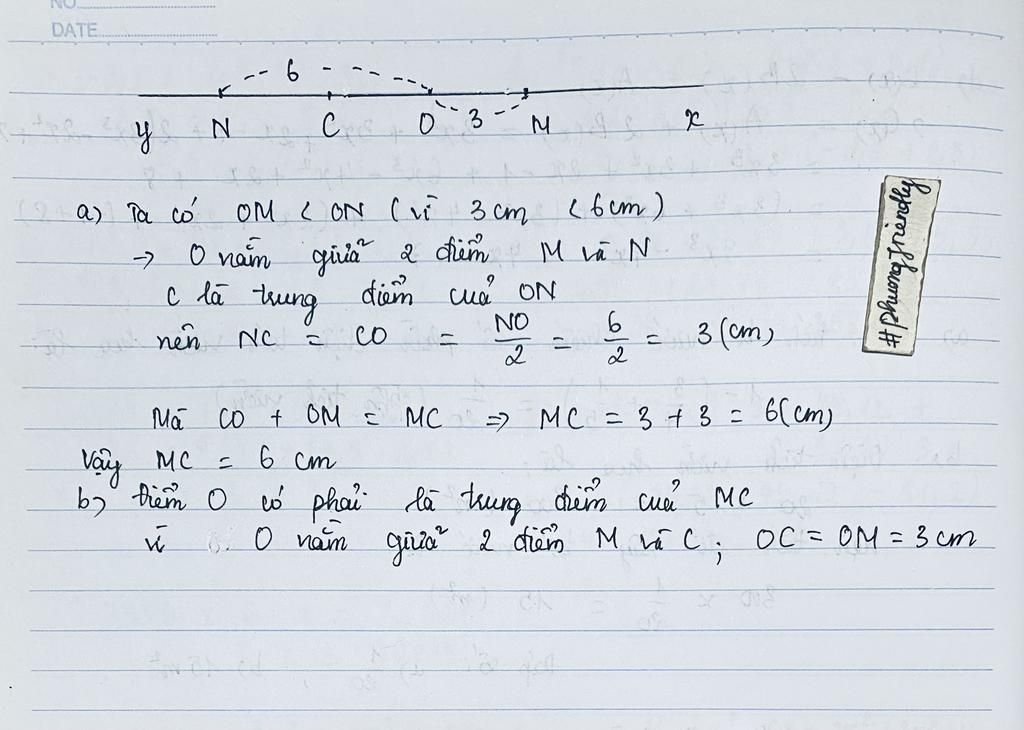 NO
DATE
6
3
y N C O M x
a) Ta có OM < ON (vì 3cm < 6cm)
→ O nằm giữa 2 điểm M và N
C là trung điểm của ON
nên NC = CO = NO/2 = 6/2 = 3(cm)
Mà CO + OM = MC => MC = 3 + 3 = 6(cm)
Vậy MC = 6 cm
b) Điểm O có phải là trung điểm của MC
vì O nằm giữa 2 điểm M và C; OC = OM = 3cm
#phuongfriendly